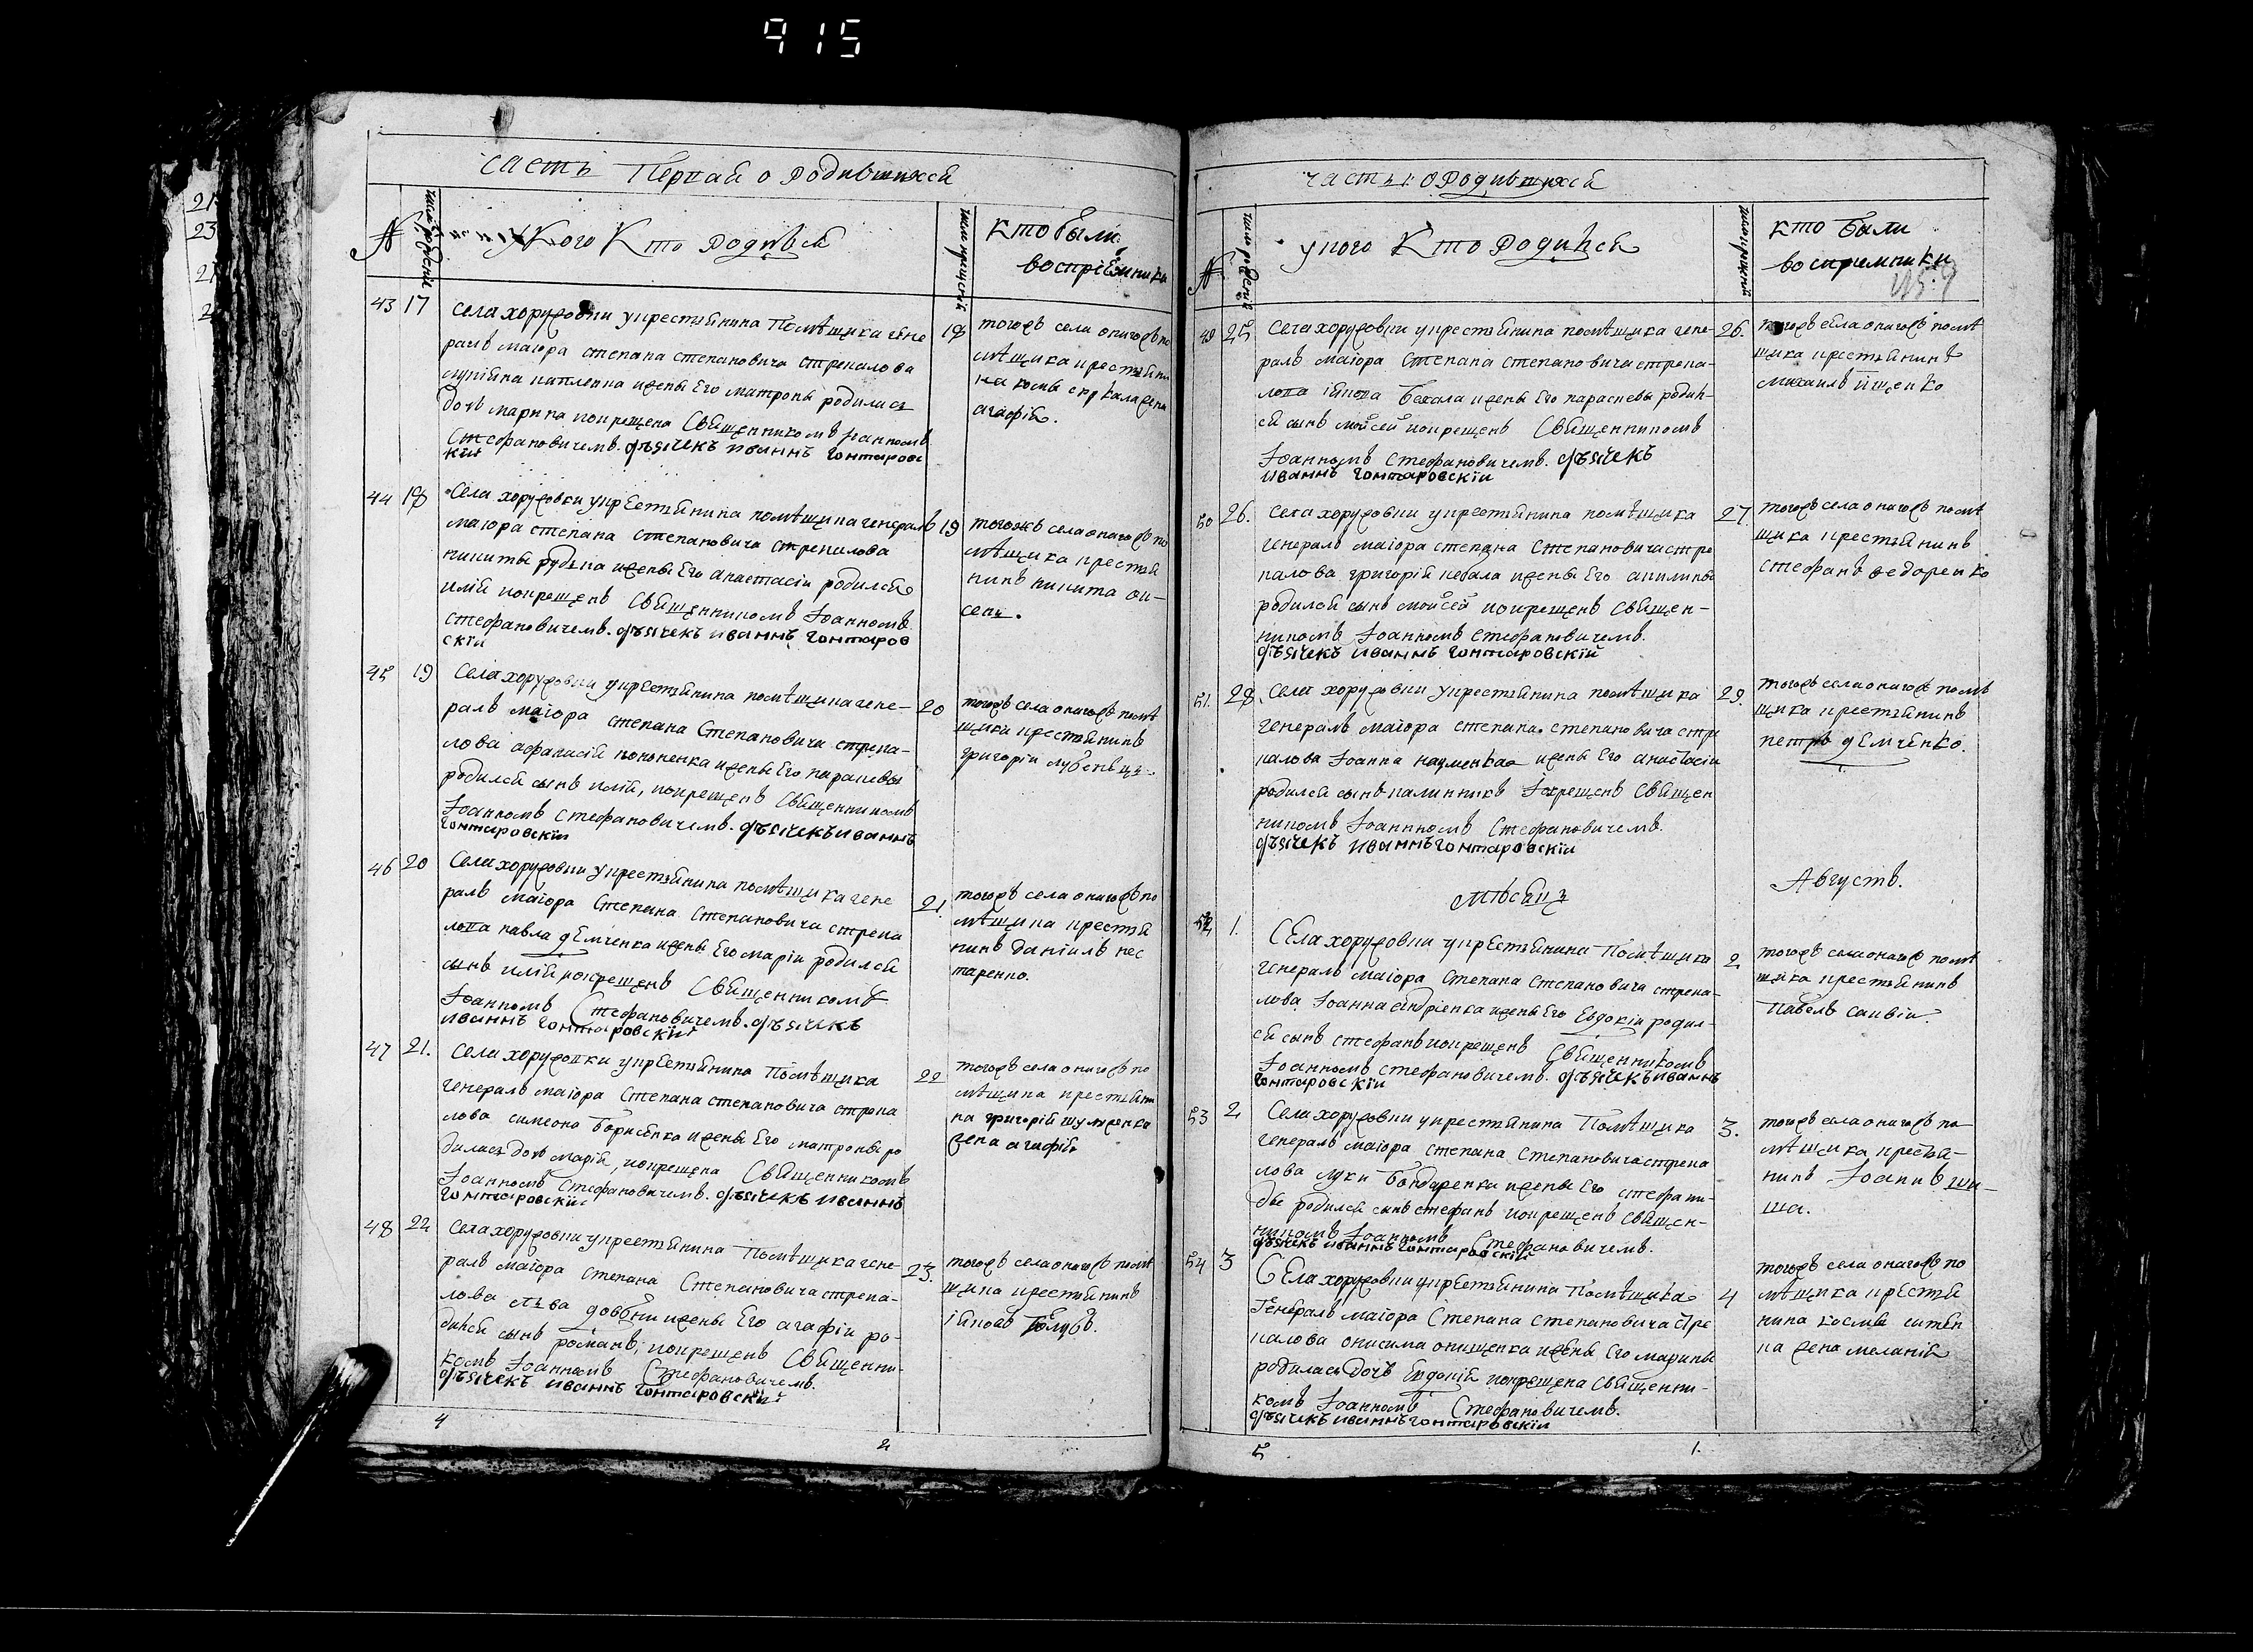 915
часть Первая о родившихся
№
число рождения
у Кого Кто родився
число крещения
кто были
восприемники
43 17
села хоружовки у крестянина Помѣщика гене
ралъ маіора степана степановича стрекалова
жены Его матроны родилась
дочь марина крещена Священникомъ Іоанномъ
Стефановичемъ. дьячекъ иваннъ Гонтаровс
кій
18
тогожъ села онагожъ по
мѣщика крестяни
на жена
агафія.
44 18
Села хоружовки у крестянина помѣщика генералъ
маіора степана степановича стрекалова
никиты жены Его анастасіи родился
илія крещенъ Священникомъ Іоанномъ
стефановичемъ. дьячекъ иваннъ гонтаров
скій
19
тогожъ села онагожъ по
мѣщика крестя
нинъ никита
45 19
Села хоружовки у крестянина помѣщика гене-
ралъ маіора степана Степановича стрека-
лова афанасій жены Его параскевы
родился сынъ илія, крещенъ Священникомъ
Іоанномъ стефановичемъ. дьячекъ иваннъ
гонтаровскій
20
тогожъ села онагожъ помѣ
щика крестянинъ
григорій
46 20
Села хоружовки у крестянина помѣщика гене
ралъ маіора Степана Степановича стрека
лова павла демченка жены Его маріи родился
сынъ илія крещенъ Священникомъ
Іоанномъ Стефановичемъ. дьячекъ
иваннъ гонтаровскій
21.
тогожъ села онагожъ по
мѣщика крестя
нинъ даніилъ нес
теренко.
47 21.
Села хоружовки у крестянина Помѣщика
генералъ маіора Степана степановича стрека
лова симеона Борисенка жены Его матроны ро
дилась дочь марія, крещена Священникомъ
Іоанномъ Стефановичемъ. дьячекъ иваннъ
гонтаровскій
22
тогожъ села онагожъ по
мѣщика крестяни
на григорій
жена агафія
48 22
Села хоружовки у крестянина Помѣщика гене-
ралъ маіора степана Степановича стрека-
лова жены Его агафіи ро-
дился сынъ романъ, крещенъ Священни-
комъ Іоанномъ Стефановичемъ.
дьячекъ иваннъ гонтаровскій
23.
тогожъ села онагожъ помѣ
щика крестянинъ
іяковъ голубъ.
4
2
часть 1 о родившихся
№
число рождения
у кого Кто родился
число крещения
кто были
восприемники
49 25
Села хоружовки у крестянина помѣщика гене-
ралъ маіора Степана Степановича стрека-
лова іякова жены Его параскевы родил-
ся сынъ моисей крещенъ Священникомъ
Іоанномъ Стефановичемъ. дьячекъ
иваннъ гонтаровскій
26.
тогожъ села онагожъ помѣ
щика крестянинъ
михаилъ іщенко
50 26.
Села хоружовки у крестянина помѣщика
генералъ маіора степана Степановича стре
калова григорій жены Его акилины
родился сынъ моисей крещенъ Священ-
никомъ Іоанномъ Стефановичемъ.
дьячекъ иваннъ гонтаровскій
27.
тогожъ села онагожъ помѣ
щика крестянинъ
стефанъ федоренко
51. 28.
Села хоружовки у крестянина помѣщика
генералъ маіора степана степановича стре
калова Іоанна науменка жены Его анастасіи
родился сынъ калинникъ крещенъ Священ
никомъ Іоанномъ Стефановичемъ.
дьячекъ иваннъ гонтаровскій
29.
тогожъ села онагожъ помѣ
щика крестянинъ
петръ демченко.
мѣсяцъ Августъ.
52 1.
Села хоружовки у крестянина Помѣщика
генералъ маіора Степана Степановича стрека-
лова Іоанна жены Его Евдокіи родил-
ся сынъ стефанъ крещенъ Священникомъ
Іоанномъ стефановичемъ. дьячекъ иваннъ
гонтаровскій
2
тогожъ села онагожъ помѣ
щика крестянинъ
Павелъ
53 2
Села хоружовки у крестянина Помѣщика
генералъ маіора степана Степановича стрека
лова луки Бондаренка жены Его стефани-
ды родился сынъ стефанъ крещенъ Священ-
никомъ Іоанномъ Стефановичемъ.
дьячекъ иваннъ гонтаровскій
3.
тогожъ села онагожъ по
мѣщика крестя-
нинъ Іоаннъ
54 3
Села хоружовки у крестянина Помѣщика
Генералъ маіора Степана степановича Стре
калова онисима онищенка жены Его марины
родилась дочь Евдокія крещена Священни-
комъ Іоанномъ Стефановичемъ.
дьячекъ иваннъ гонтаровскій
4
тогожъ села онагожъ по
мѣщика крестя
нина космы
жена меланія
5
1.